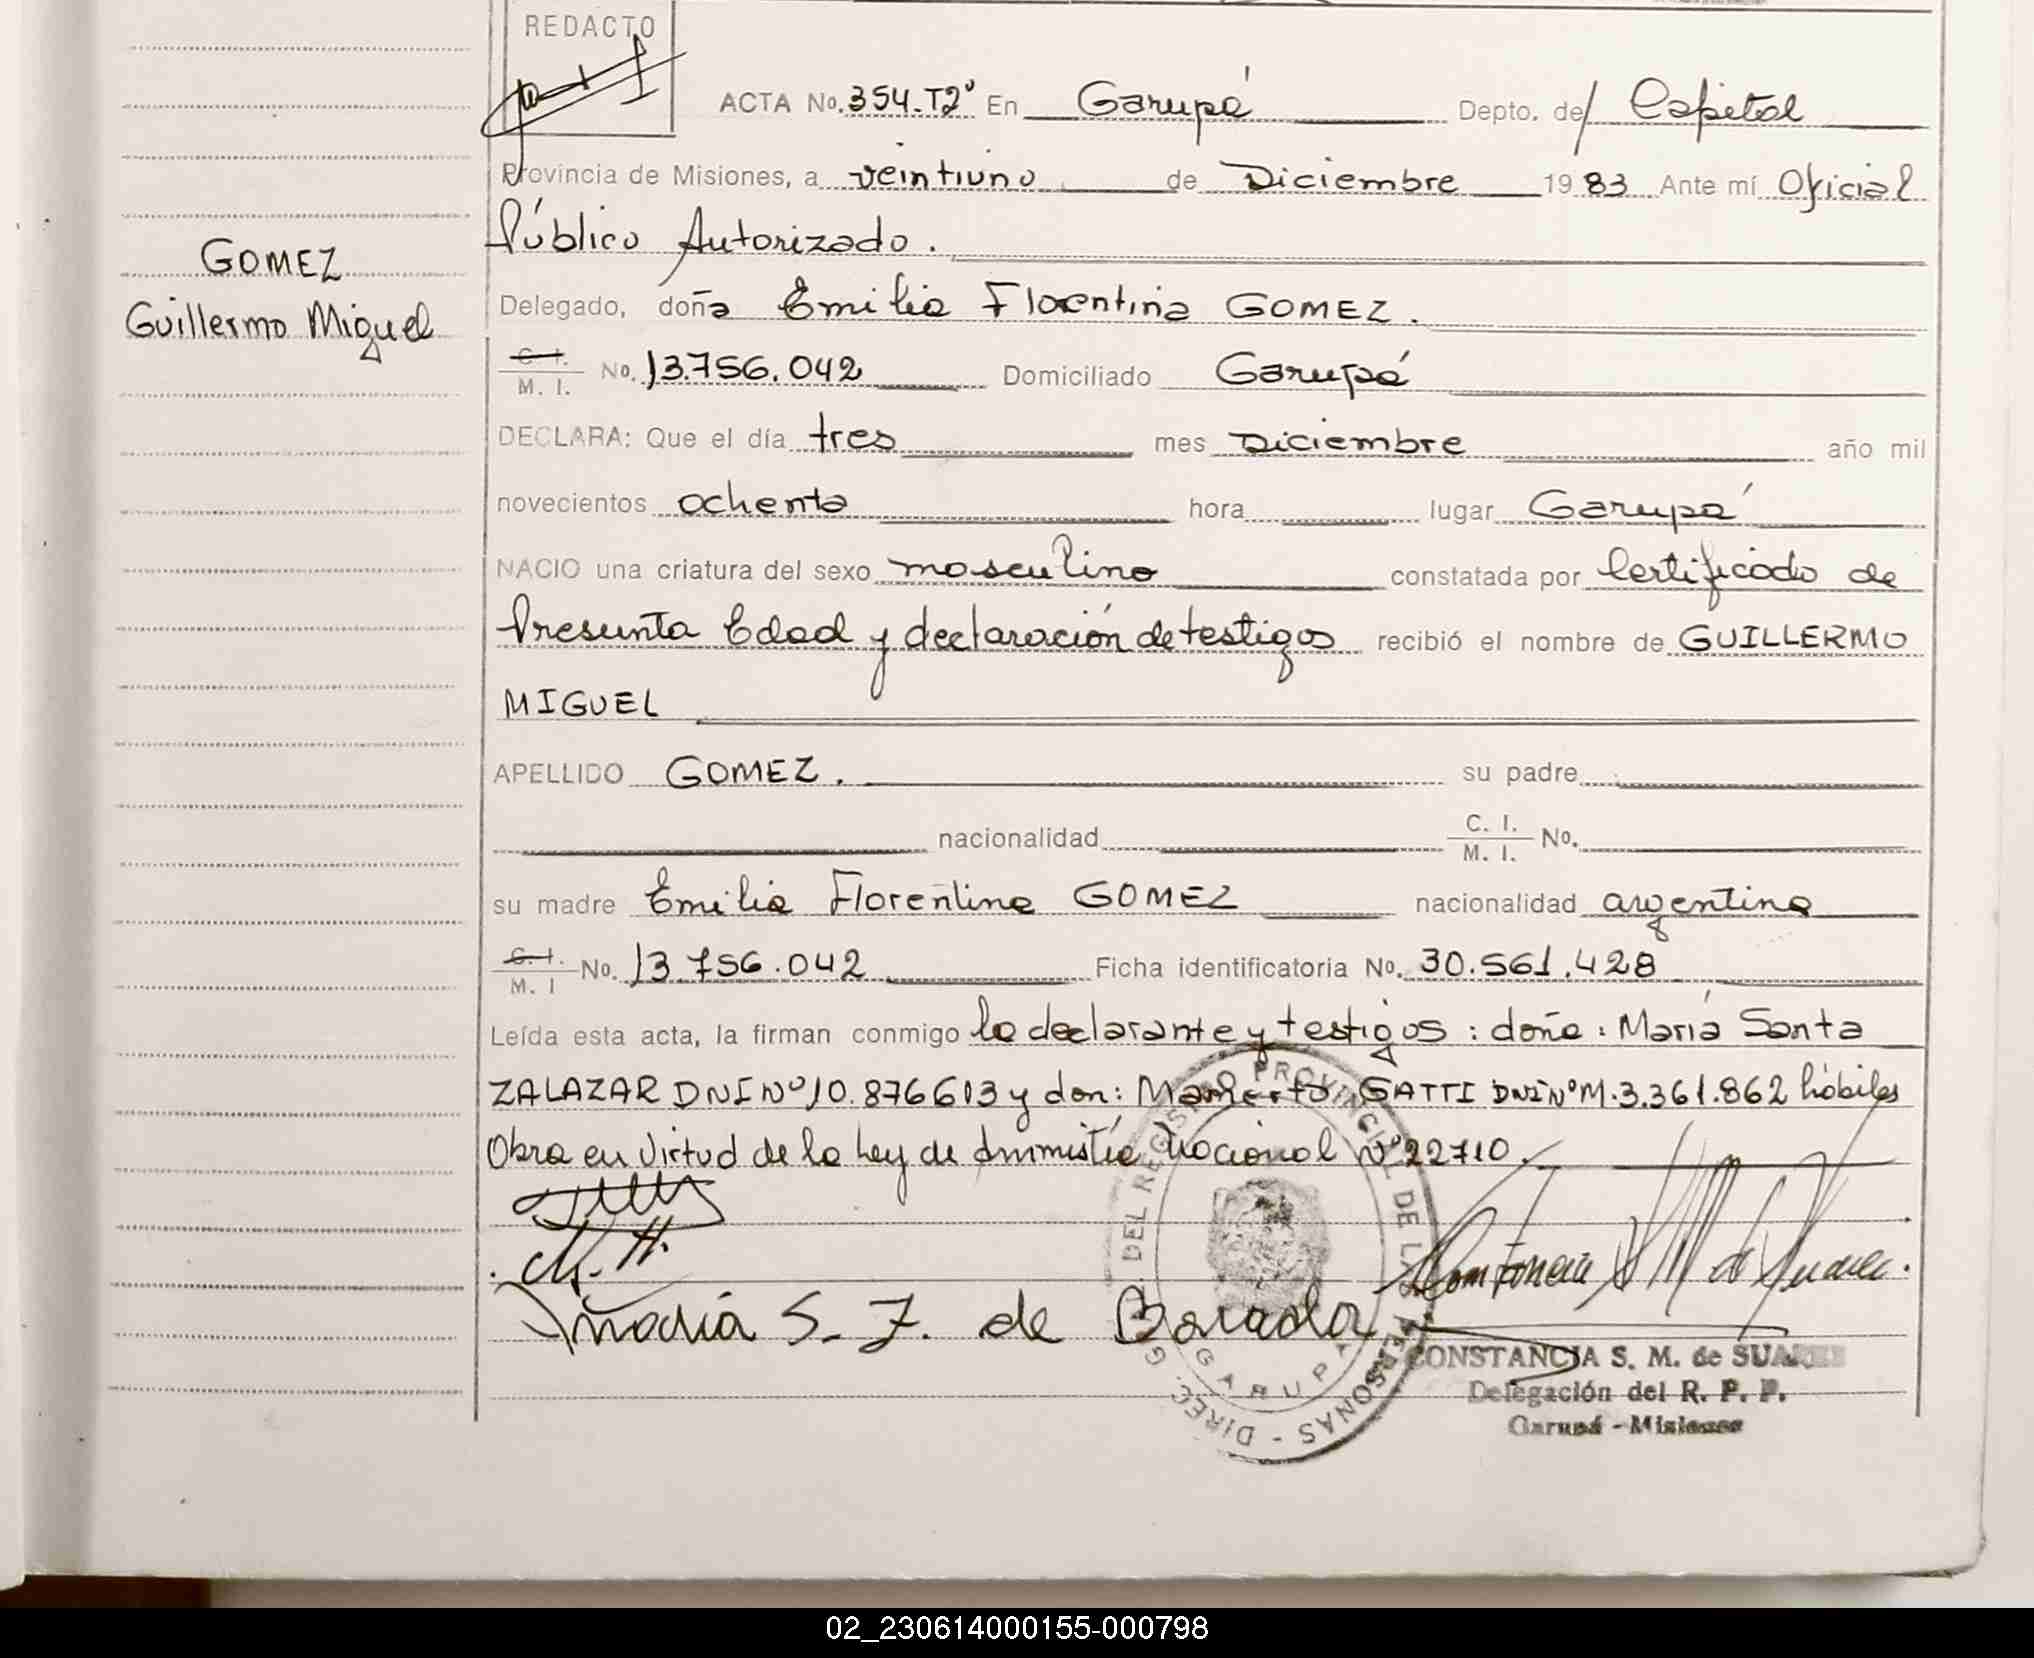 REDACTO
ACTA No. 354-T2º En Garupá Depto. de Capital
Provincia de Misiones, a veintiuno de Diciembre 1983 Ante mí Oficial
Público Autorizado.
GOMEZ
Guillermo Miguel
Delegado, doña Emilia Florentina GOMEZ.
C. I. M. I. No. 13.756.042 Domiciliado Garupá
DECLARA: Que el día tres mes Diciembre año mil
novecientos ochenta hora lugar Garupá
NACIO una criatura del sexo masculino constatada por Certificado de
Presunta Edad y declaración de testigos recibió el nombre de GUILLERMO
MIGUEL
APELLIDO GOMEZ. su padre
nacionalidad C. I. M. I. No.
su madre Emilia Florentina GOMEZ nacionalidad argentina
C. I. M. I No. 13.756.042 Ficha identificatoria No. 30.561.428
Leída esta acta, la firman conmigo la declarante y testigos : doña : María Santa
ZALAZAR DNI Nº 10.876613 y don: Mamerto GATTI DNI Nº M.3.361.862 hábiles
Obra en virtud de la Ley de Ammistía Nacional Nº 22710.
DIREC. G. DEL REGISTRO PROVINCIAL DE LAS PERSONAS -
GARUPA
María S. Z. de Borada
Constancia S M de Suarez.
CONSTANCIA S. M. de SUAREZ
Delegación del R. P. P.
Garupá - Misiones
02_230614000155-000798